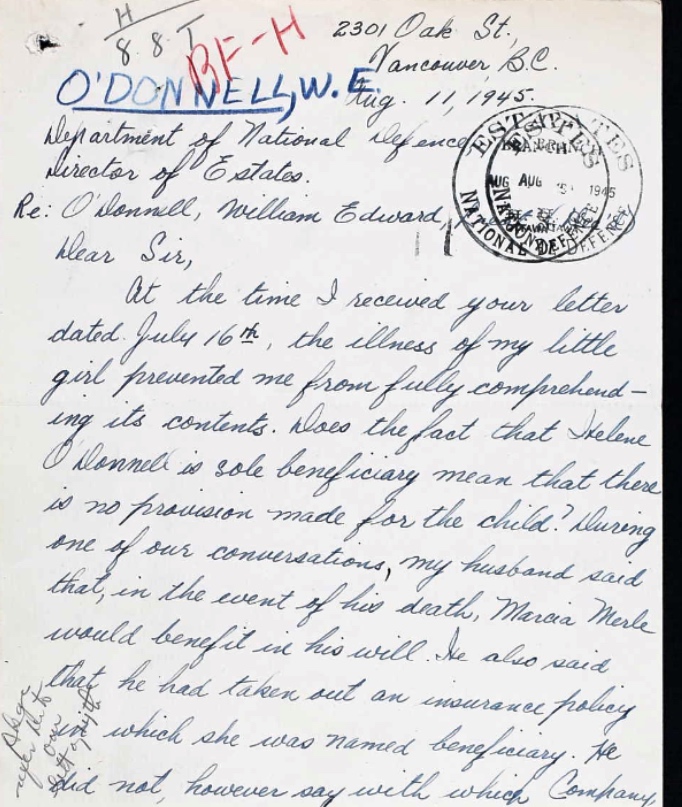 H
8. 8. I
BF-H
2301 Oak St.,
Vancouver, B.C.
O'DONNELL, W. E.
Aug. 11, 1945.
Department of National Defence
Director of Estates.
ESTATES
BRANCH
AUG AUG 15 1945
NATIONAL DEFENCE
Re: O'Donnell, William Edward,
Dear Sir,
At the time I received your letter
dated July 16th, the illness of my little
girl prevented me from fully comprehend-
ing its contents. Does the fact that Helene
O'Donnell is sole beneficiary mean that there
is no provision made for the child? During
one of our conversations, my husband said
that, in the event of his death, Marcia Merle
would benefit in his will. He also said
that he had taken out an insurance policy
in which she was named beneficiary. He
did not, however say with which Company